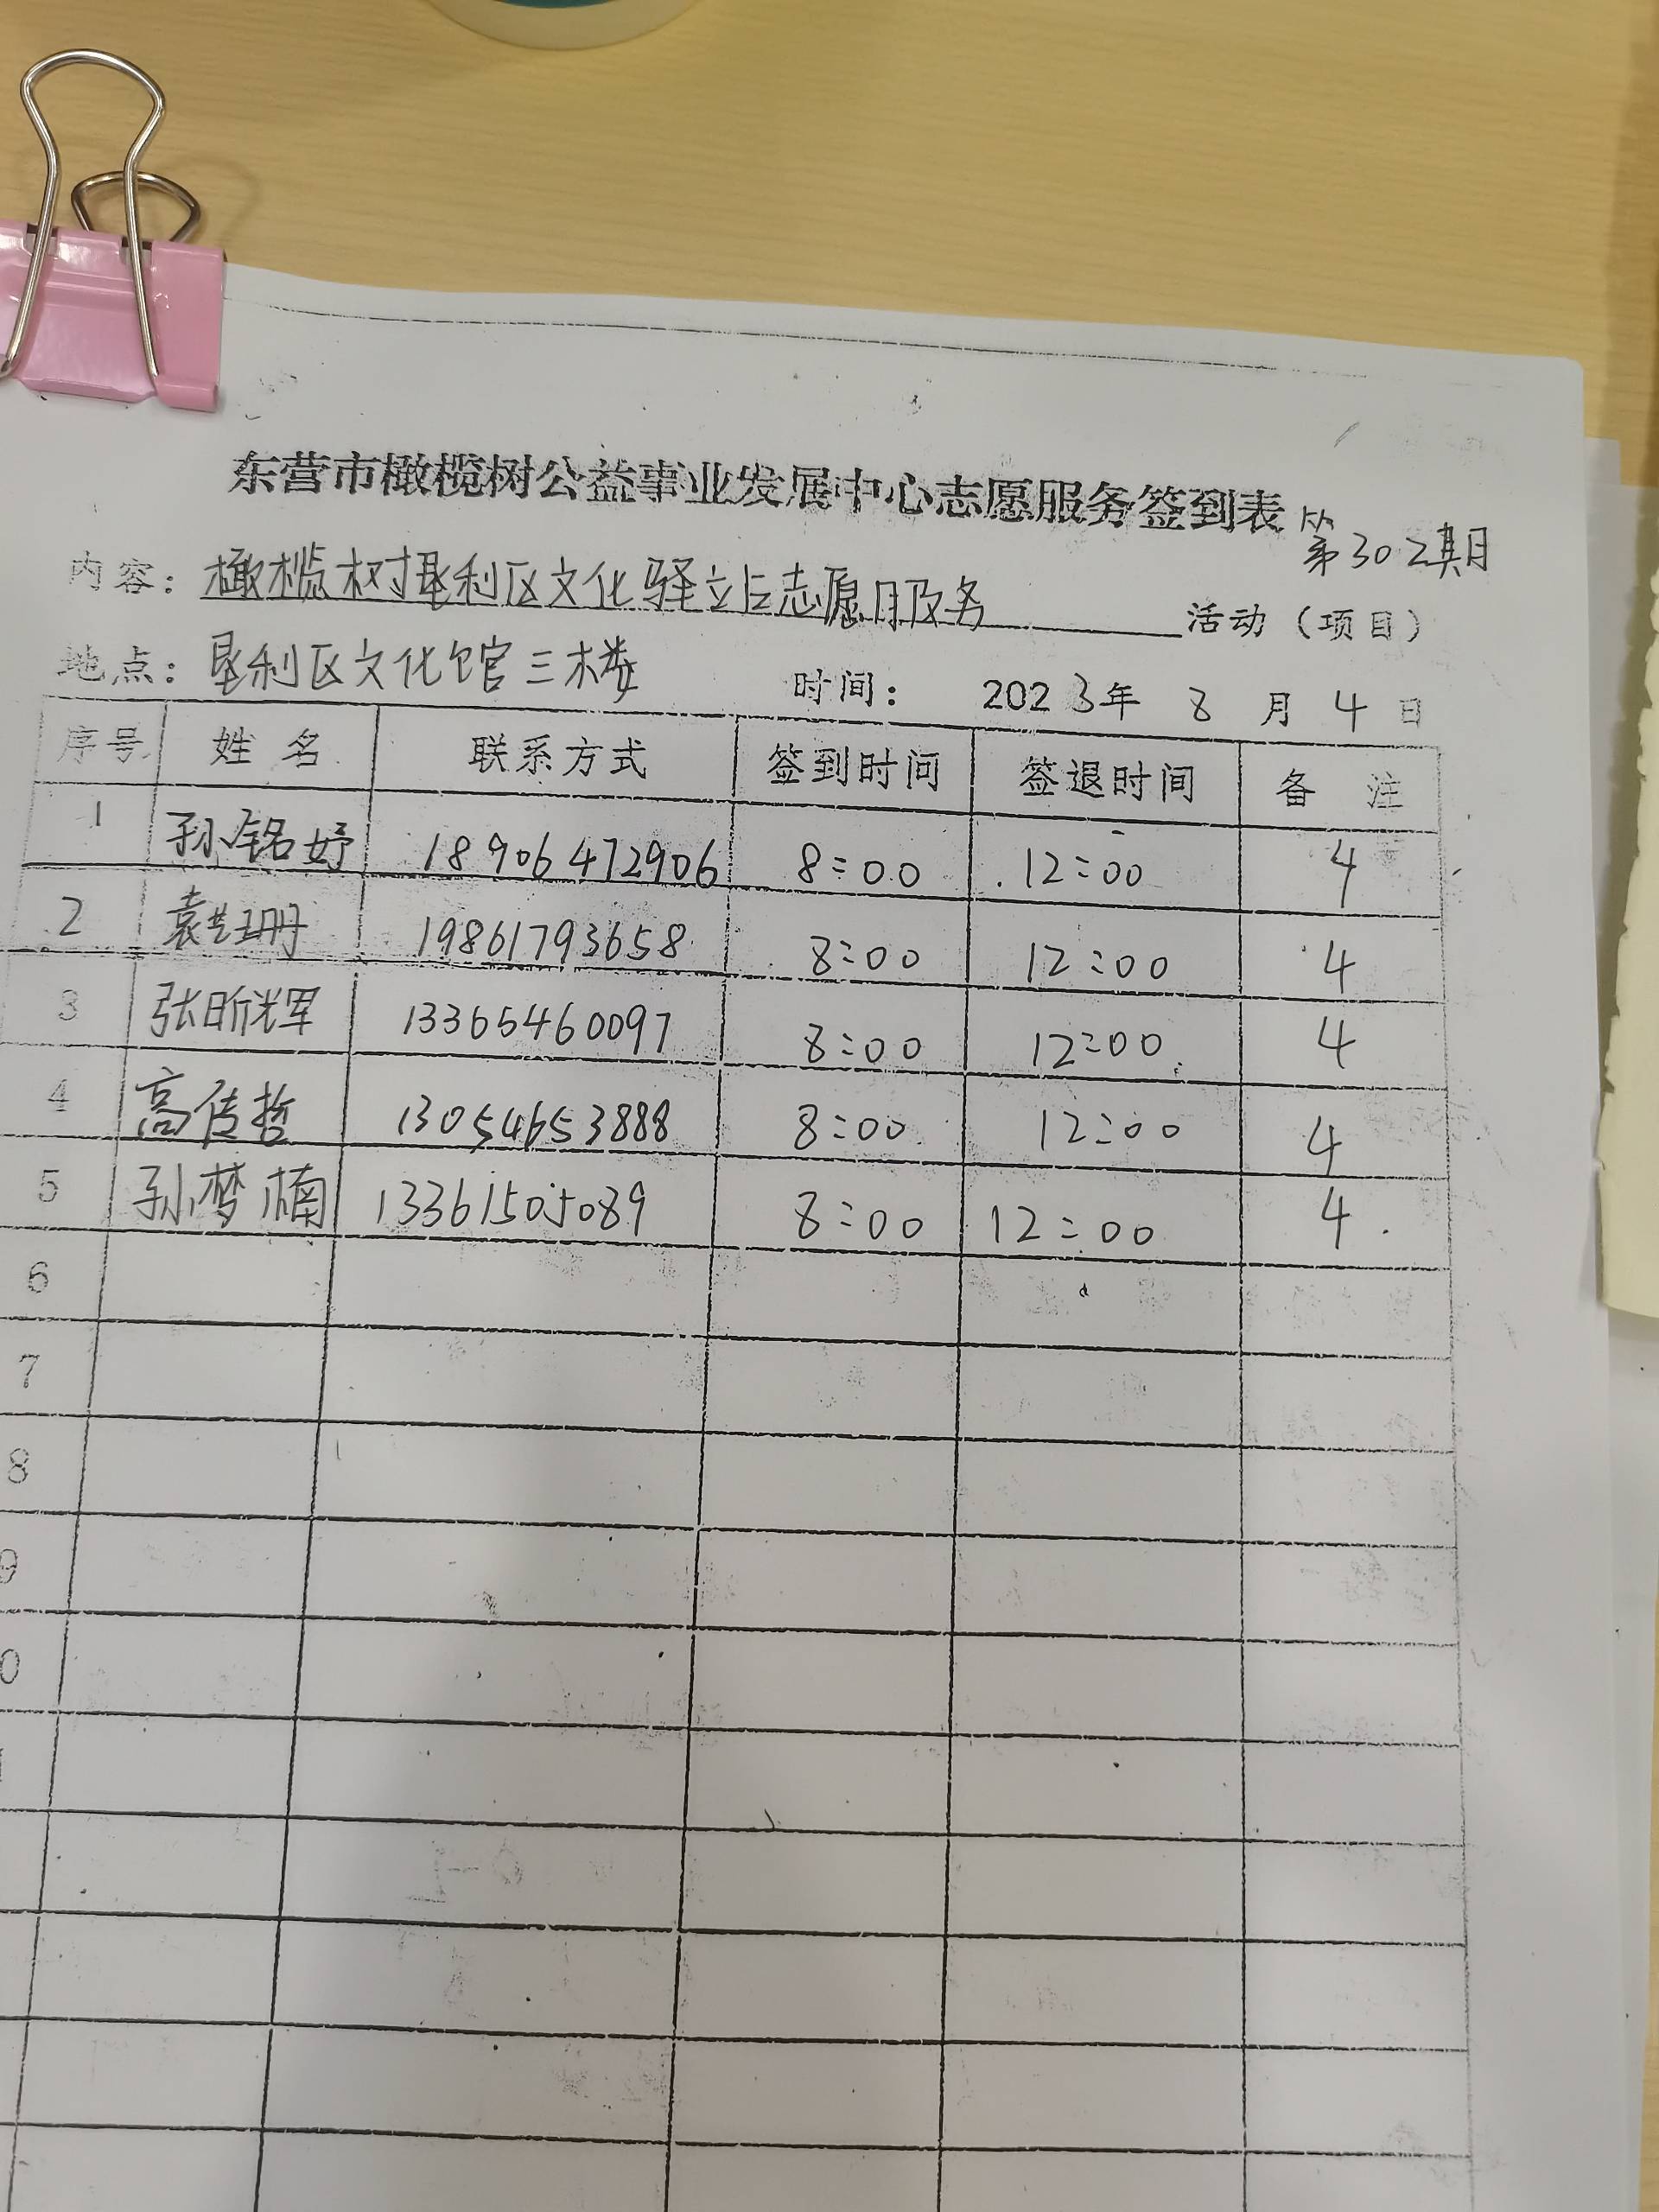 东营市橄榄树公益事业发展中心志愿服务签到表 第302期
内容：橄榄树垦利区文化驿站志愿服务 活动（项目）
地点：垦利区文化馆三楼 时间： 2023年 8 月 4 日
序号 姓 名 联系方式 签到时间 签退时间 备 注
1 孙铭妤 18906472906 8:00 12:00 4
2 袁艺珊 19861793658 8:00 12:00 4
3 张昕辉 13365460097 8:00 12:00 4
4 高传哲 13054653888 8:00 12:00 4
5 孙梦楠 13361505089 8:00 12:00 4
6
7
8
9
0